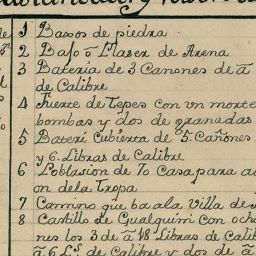 1 Baxos de piedra
2 Baxo ō Plaser de Arena
3 Bateria de 3 Canones de ā
de Calibre
4 Fuerte de Tepes con vn morte
bombas y dos de granadas
5 Bateri Cubierta de 5. Cañones
y 6. Libras de Calibre
6 Poblasion de 70 Casa para
on dela Tropa
7 Camino que ba ala Villa de S
8 Castillo de Gualquini con och
nes los 3 de ā 18 Libras de Calib
ā 6 Ls de Calibre y dos de ā